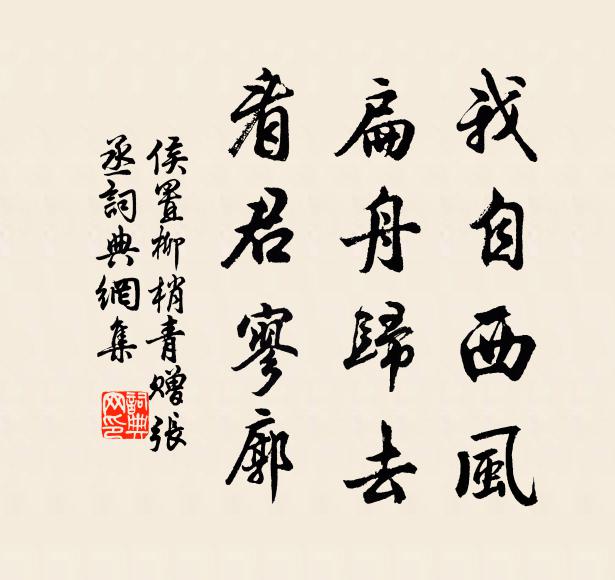 我自西風
扁舟歸去
看君寥廓
侯置柳梢青贈張
丞詞典網集
詞典
网印